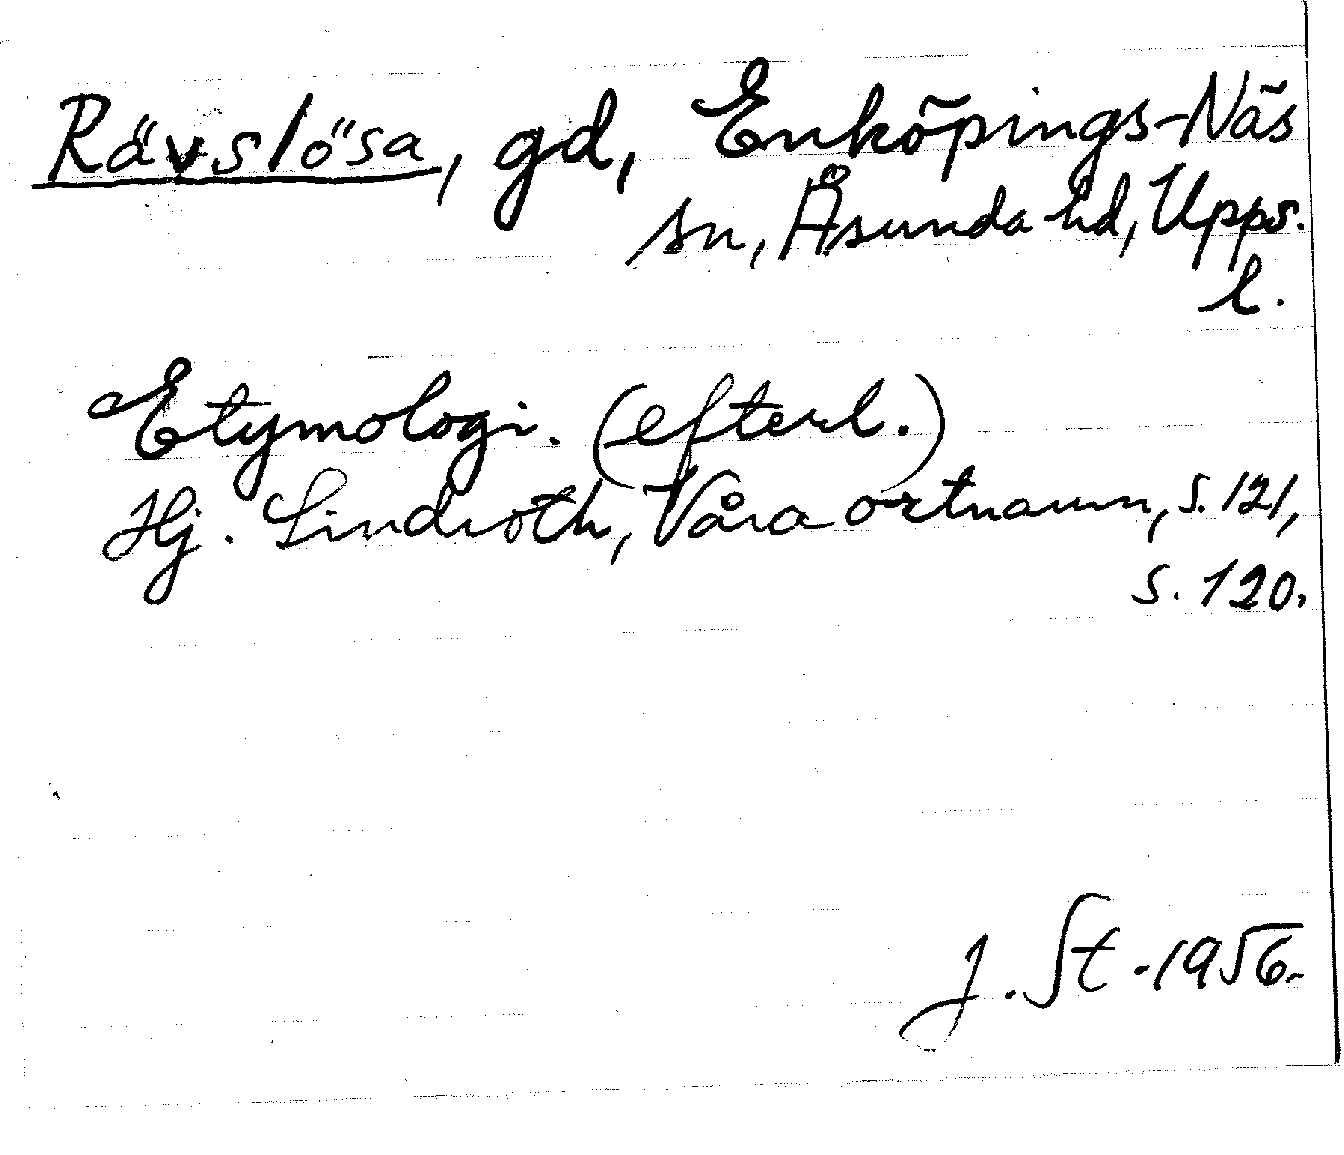 Rävslösa, gd, Enköpings-Näs
sn, Åsunda hd, Upps.
l.
Etymologi. (efterl.)
Hj. Lindroth, Våra ortnamn, s. 121,
s. 120.
J. St. 1956.